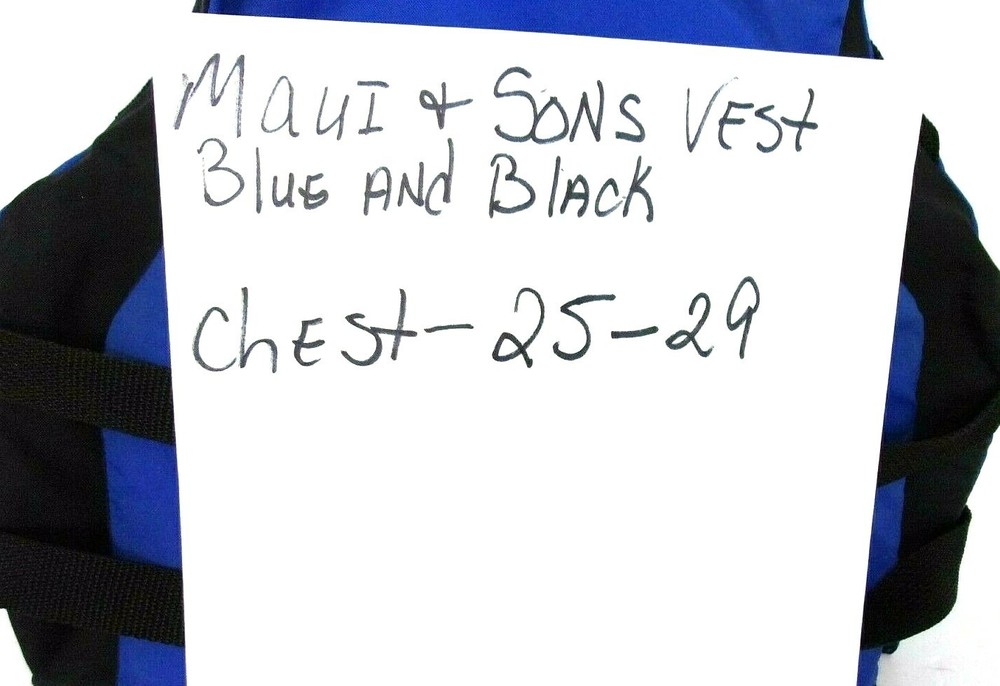 MauI & SONS VESt
Blue ANd BlAcK
ChESt-25-29